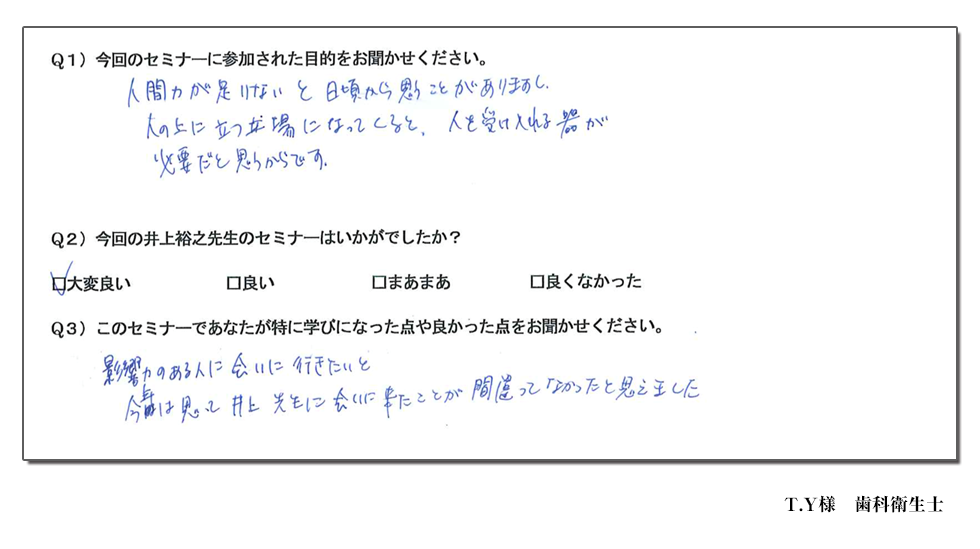 Q1）今回のセミナーに参加された目的をお聞かせください。
人間力が足りないと日頃から思うことがありますし、
人の上に立つ立場になってくると、人を受け入れる器が
必要だと思うからです。
Q2）今回の井上裕之先生のセミナーはいかがでしたか？
☑大変良い　□良い　□まあまあ　□良くなかった
Q3）このセミナーであなたが特に学びになった点や良かった点をお聞かせください。
影響力のある人に会いに行きたいと
今年は思って井上先生に会いに来たことが間違ってなかったと思えました
T.Y様　歯科衛生士